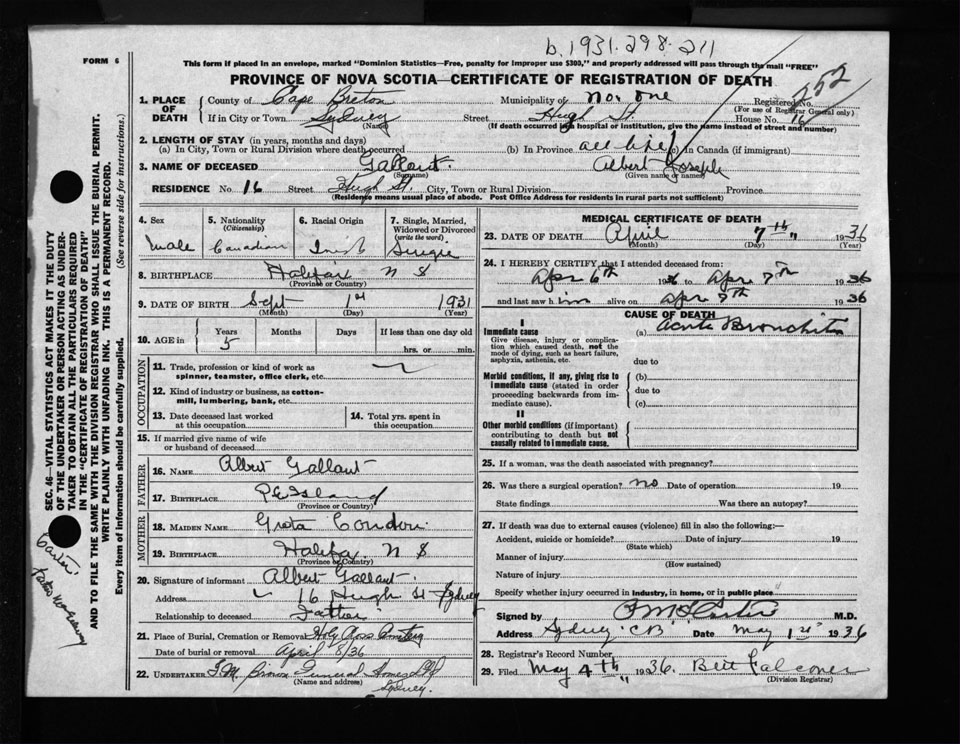 b. 1931. 298. 211
FORM 6
This form if placed in an envelope, marked "Dominion Statistics—Free, penalty for improper use $300," and properly addressed will pass through the mail "FREE"
PROVINCE OF NOVA SCOTIA—CERTIFICATE OF REGISTRATION OF DEATH
252
1. PLACE OF DEATH
County of Cape Breton Municipality of No. one Registered No.
(For use of Registrar General only)
If in City or Town Sydney Street Hugh St. House No. 16
(Name) (If death occurred in hospital or institution, give name instead of street and number)
2. LENGTH OF STAY (in years, months and days)
(a) In City, Town or Rural Division where death occurred (b) In Province all life (c) In Canada (if immigrant)
3. NAME OF DECEASED Gallant Albert Joseph
(Surname) (Given name or names)
RESIDENCE No. 16 Street Hugh St. City, Town or Rural Division Province
(Residence means usual place of abode. Post Office Address for residents in rural parts not sufficient)
4. Sex Male
5. Nationality (Citizenship) Canadian
6. Racial Origin Irish
7. Single, Married, Widowed or Divorced (write the word) Single
8. BIRTHPLACE Halifax N S
(Province or Country)
9. DATE OF BIRTH Sept 1st 1931
(Month) (Day) (Year)
10. AGE in Years Months Days If less than one day old
5 hrs. or min.
OCCUPATION
11. Trade, profession or kind of work as spinner, teamster, office clerk, etc.
12. Kind of industry or business, as cotton-mill, lumbering, bank, etc.
13. Date deceased last worked at this occupation
14. Total yrs. spent in this occupation
15. If married give name of wife or husband of deceased
FATHER
16. NAME Albert Gallant
17. BIRTHPLACE P E Island
(Province or Country)
MOTHER
18. MAIDEN NAME Greta Condon
19. BIRTHPLACE Halifax N S
(Province or Country)
20. Signature of informant Albert Gallant
Address 16 Hugh St Sydney
Relationship to deceased Father
21. Place of Burial, Cremation or Removal Holy Cross Cemetery
Date of burial or removal April 8/36
22. UNDERTAKER T.M. Brown Funeral Home
(Name and address) Sydney.
MEDICAL CERTIFICATE OF DEATH
23. DATE OF DEATH April 7th 1936
(Month) (Day) (Year)
24. I HEREBY CERTIFY that I attended deceased from:
Apr 6th 1936 to Apr 7th 1936
and last saw him alive on Apr 7th 1936
CAUSE OF DEATH
I
Immediate cause (a) Acute Bronchitis
Give disease, injury or complication which caused death, not the mode of dying, such as heart failure, asphyxia, asthenia, etc.
due to
Morbid conditions, if any, giving rise to immediate cause (stated in order proceeding backwards from immediate cause).
(b)
due to
(c)
II
Other morbid conditions (if important) contributing to death but not causally related to immediate cause.
25. If a woman, was the death associated with pregnancy?
26. Was there a surgical operation? no Date of operation 19
State findings Was there an autopsy?
27. If death was due to external causes (violence) fill in also the following:—
Accident, suicide or homicide? Date of injury 19
(State which)
Manner of injury
(How sustained)
Nature of injury
Specify whether injury occurred in industry, in home, or in public place
Signed by M.D.
Address Sydney C B Date May 1st 1936
28. Registrar's Record Number
29. Filed May 4th 1936. Falconer
(Division Registrar)
SEC. 46—VITAL STATISTICS ACT MAKES IT THE DUTY
OF THE UNDERTAKER OR PERSON ACTING AS UNDER-
TAKER TO OBTAIN ALL THE PARTICULARS REQUIRED
IN THE "CERTIFICATE OF REGISTRATION OF DEATH"
AND TO FILE THE SAME WITH THE DIVISION REGISTRAR WHO SHALL ISSUE THE BURIAL PERMIT.
WRITE PLAINLY WITH UNFADING INK. THIS IS A PERMANENT RECORD.
Every item of information should be carefully supplied. (See reverse side for instructions.)